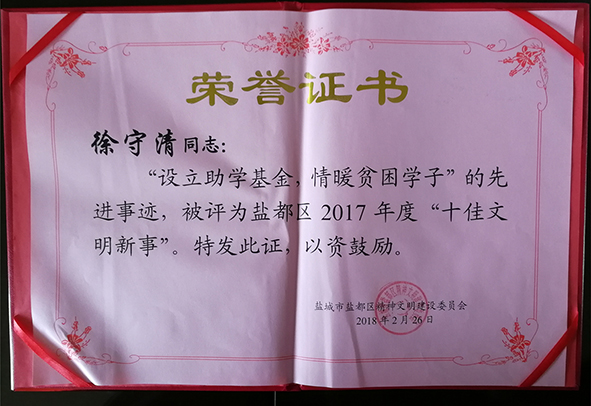 荣誉证书
徐守清同志：
“设立助学基金，情暖贫困学子”的先
进事迹，被评为盐都区2017年度“十佳文
明新事”。特发此证，以资鼓励。
盐城市盐都区精神文明建设委员会
2018年2月26日